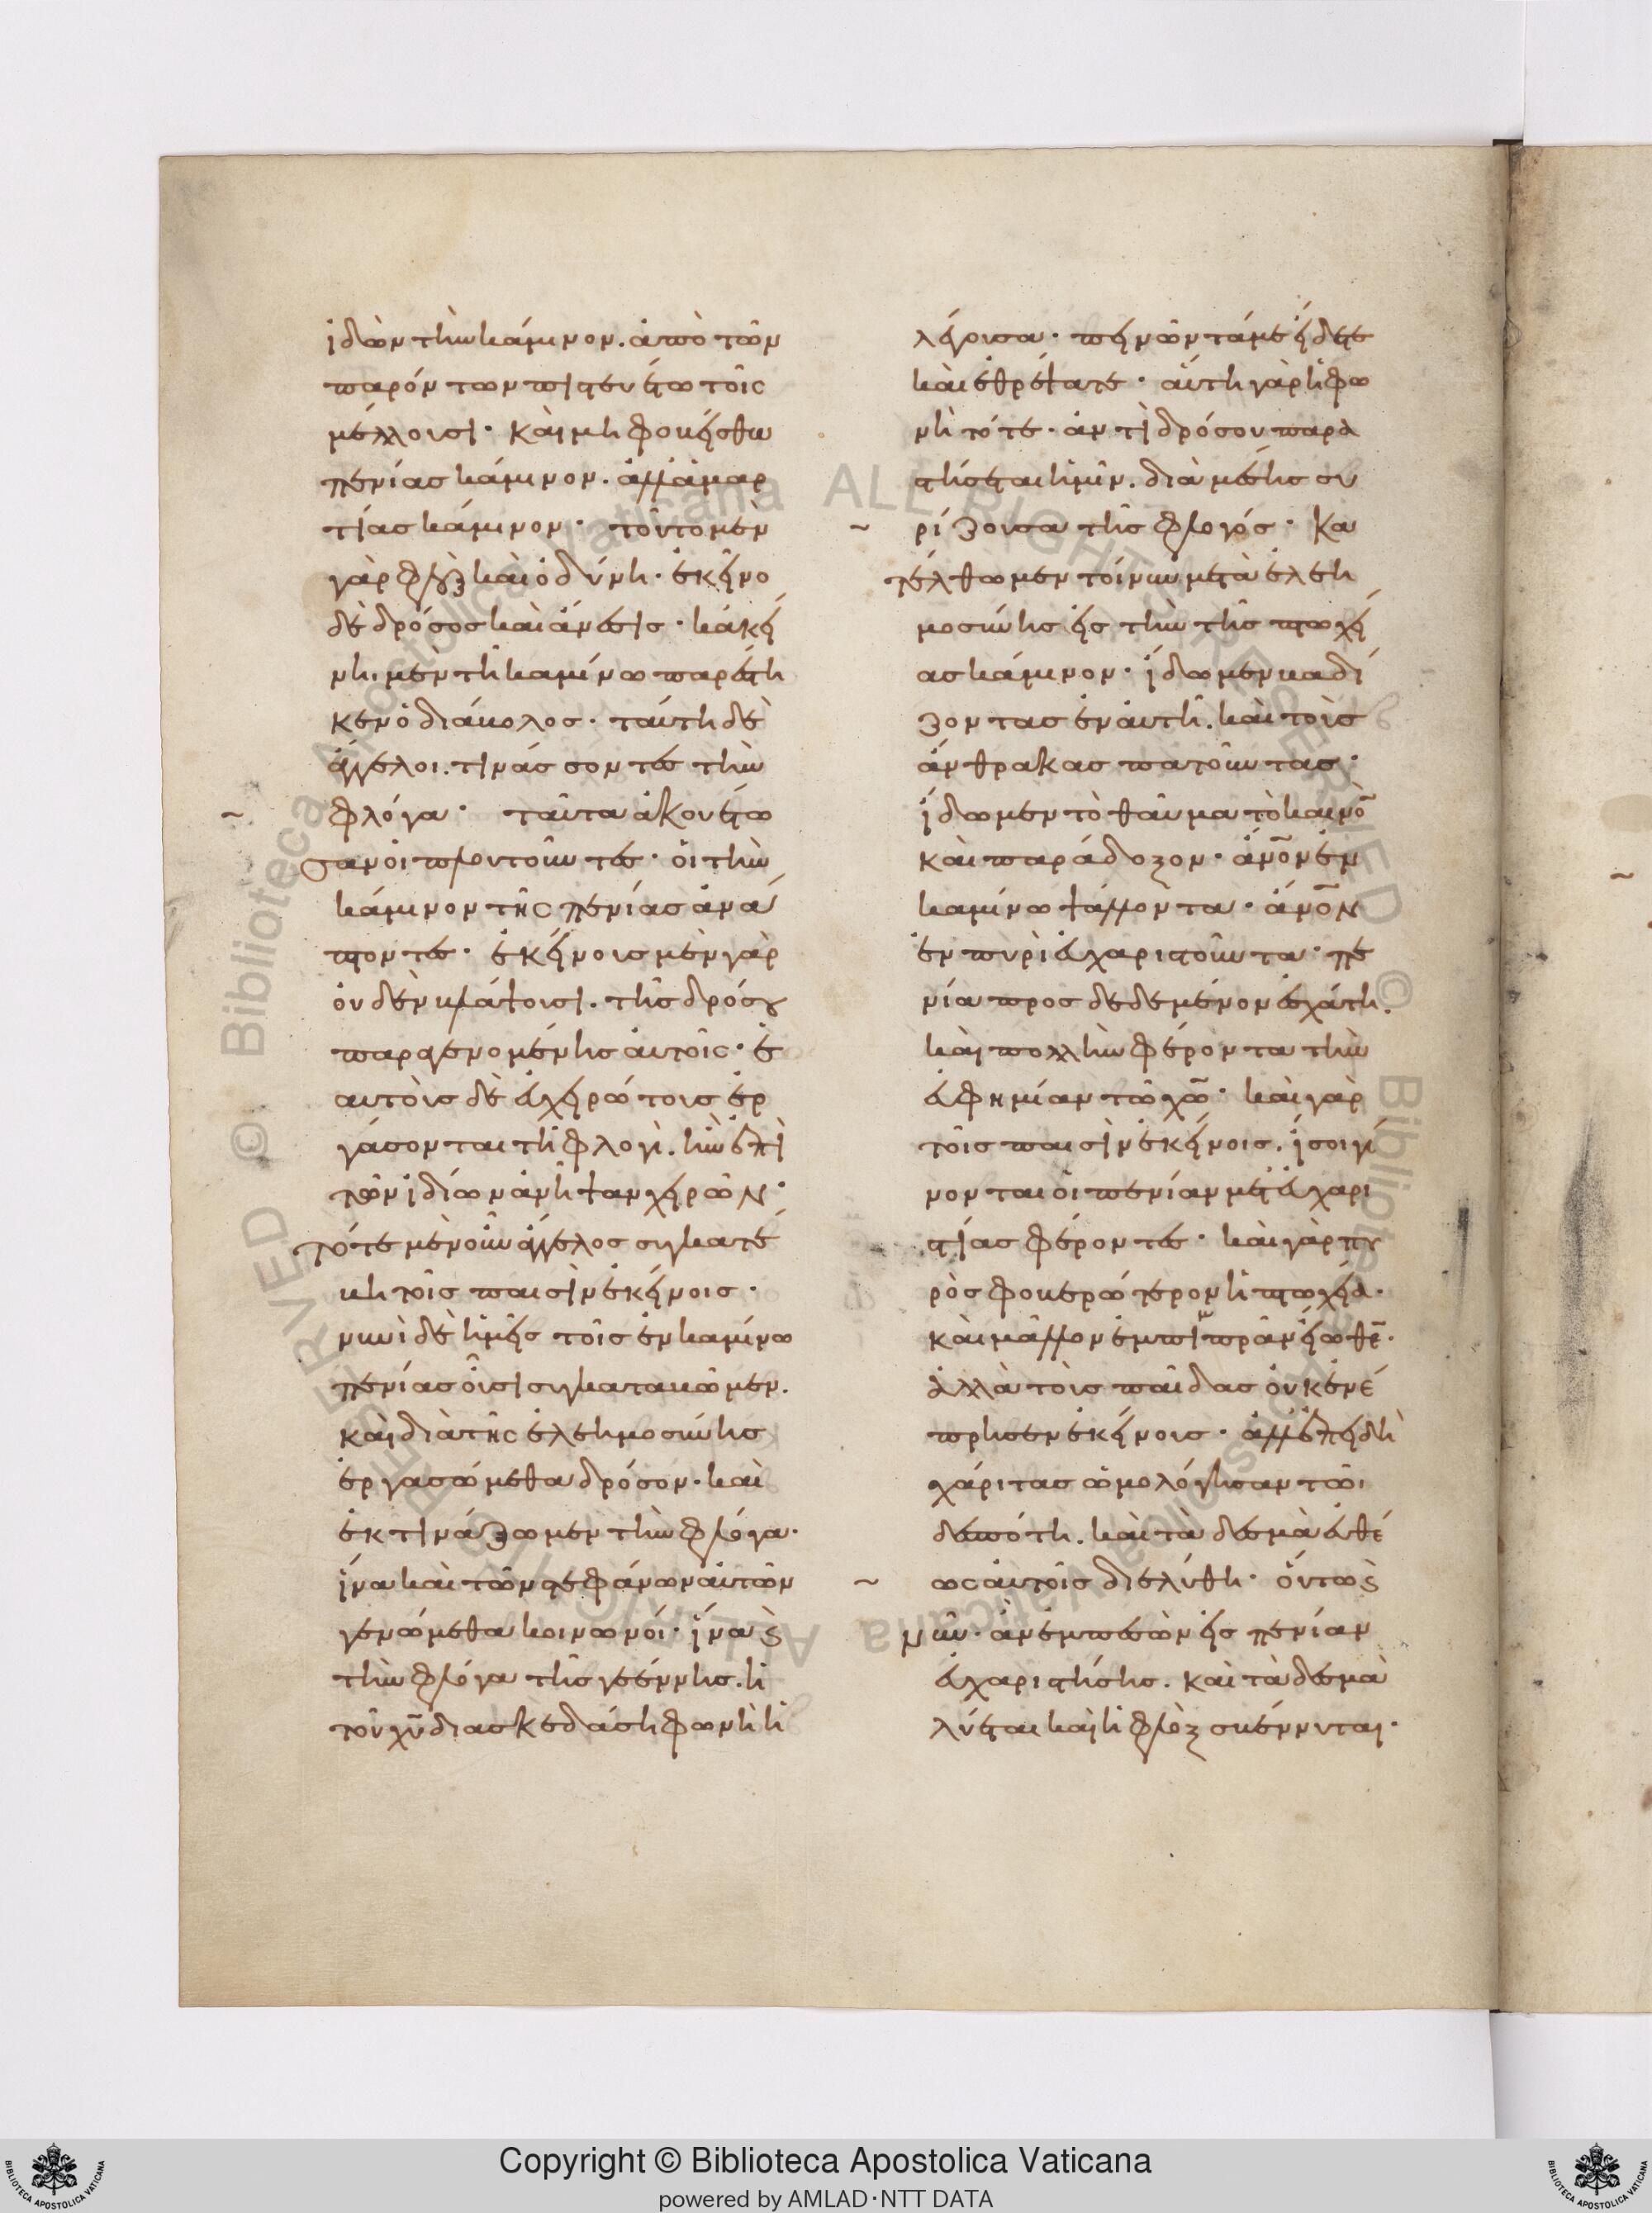 ἰδὼν τὴν κάμινον. ἀπὸ τῶν
παρόντων πιστευέτω τοῖς
μέλλουσι· Καὶ μὴ φοβείσθω
πενίας κάμινον. ἀλλ' ἁμαρ
τίας κάμινον· τοῦτο μὲν
γὰρ φλὸξ καὶ ὀδύνη· ἐκεῖνο
δὲ δρόσος καὶ ἄνεσις· κἀκεί
νη μὲν τῆ καμίνω παρέστη
κεν ὁ διάβολος· ταύτη δὲ
ἄγγελοι. τινάσσοντες τὴν
φλόγα· ταῦτα ἀκουέτω
σαν οἱ πλουτοῦντες· οἱ τὴν
κάμινον τῆς πενίας ἀνά
πτοντες· ἐκείνους μὲν γὰρ
οὐδὲν βλάψουσι. τῆς δρόσου
παραγενομένης αὐτοῖς· ἑ
αυτοὺς δὲ εὐχειρώτους ἐρ
γάσονται τῆ φλογὶ. ἣν ἐπὶ
τῶν ἰδίων ἀνῆψαν χειρῶν·
τότε μὲν οὖν ἄγγελος συγκατέ
βη τοῖς παισὶν ἐκείνοις·
νυνὶ δὲ ἡμεῖς τοῖς ἐν καμίνω
πενίας οὖσι συγκαταβῶμεν.
καὶ διὰ τῆς ἐλεημοσύνης
ἐργασώμεθα δρόσον. καὶ
ἐκτινάξωμεν τὴν φλόγα.
ἵνα καὶ τῶν στεφάνων αὐτῶν
γενώμεθα κοινωνοί· ἵνα ϗ
τὴν φλόγα τῆς γεέννης. ἡ
τοῦ χῦ διασκεδάση φωνὴ ἡ
λέγουσα· πεινῶντά με εἴδετε
καὶ ἐθρέψατε· αὕτη γὰρ ἡ φω
νὴ τότε· ἀντὶ δρόσου παρα
στήσεται ἡμῖν. διὰ μέσης συ
ρίζουσα τῆς φλογός· Κα
τέλθωμεν τοίνυν μετὰ ἐλεη
μοσύνης εἰς τὴν τῆς πτωχεί
ας κάμινον· ἴδωμεν βαδί
ζοντας ἐν αὐτῆ. καὶ τοὺς
ἄνθρακας πατοῦντας·
ἴδωμεν τὸ θαῦμα τὸ καινὸ
καὶ παράδοξον· ἄνον ἐν
καμίνω ψάλλοντα· ἄνον
ἐν πυρὶ εὐχαριστοῦντα· πε
νία προσδεδεμένον ἐσχάτη.
καὶ πολλὴν φέροντα τὴν
εὐφημίαν τῶ χῶ· καὶ γὰρ
τοῖς παισὶν ἐκείνοις. ἴσοι γί
νονται οἱ πενίαν μετ' εὐχαρι
στίας φέροντες· καὶ γὰρ πυ
ρὸς φοβερώτερον ἡ πτωχεία.
καὶ μᾶλλον ἐμπιπρᾶν εἴωθε.
ἀλλὰ τοὺς παῖδας οὐκ ἐνέ
πρησεν ἐκείνους· ἀλλ' ἐπειδὴ
χάριτας ὡμολόγησαν τῶι
δεσπότη. καὶ τὰ δεσμὰ εὐθέ
ως αὐτοῖς διελύθη· οὕτως
νῦν. ἂν ἐμπεσὼν εἰς πενίαν
εὐχαριστήσης. καὶ τὰ δεσμὰ
λύεται καὶ ἡ φλὸξ σβέννυται·
Copyright © Biblioteca Apostolica Vaticana
powered by AMLAD·NTT DATA